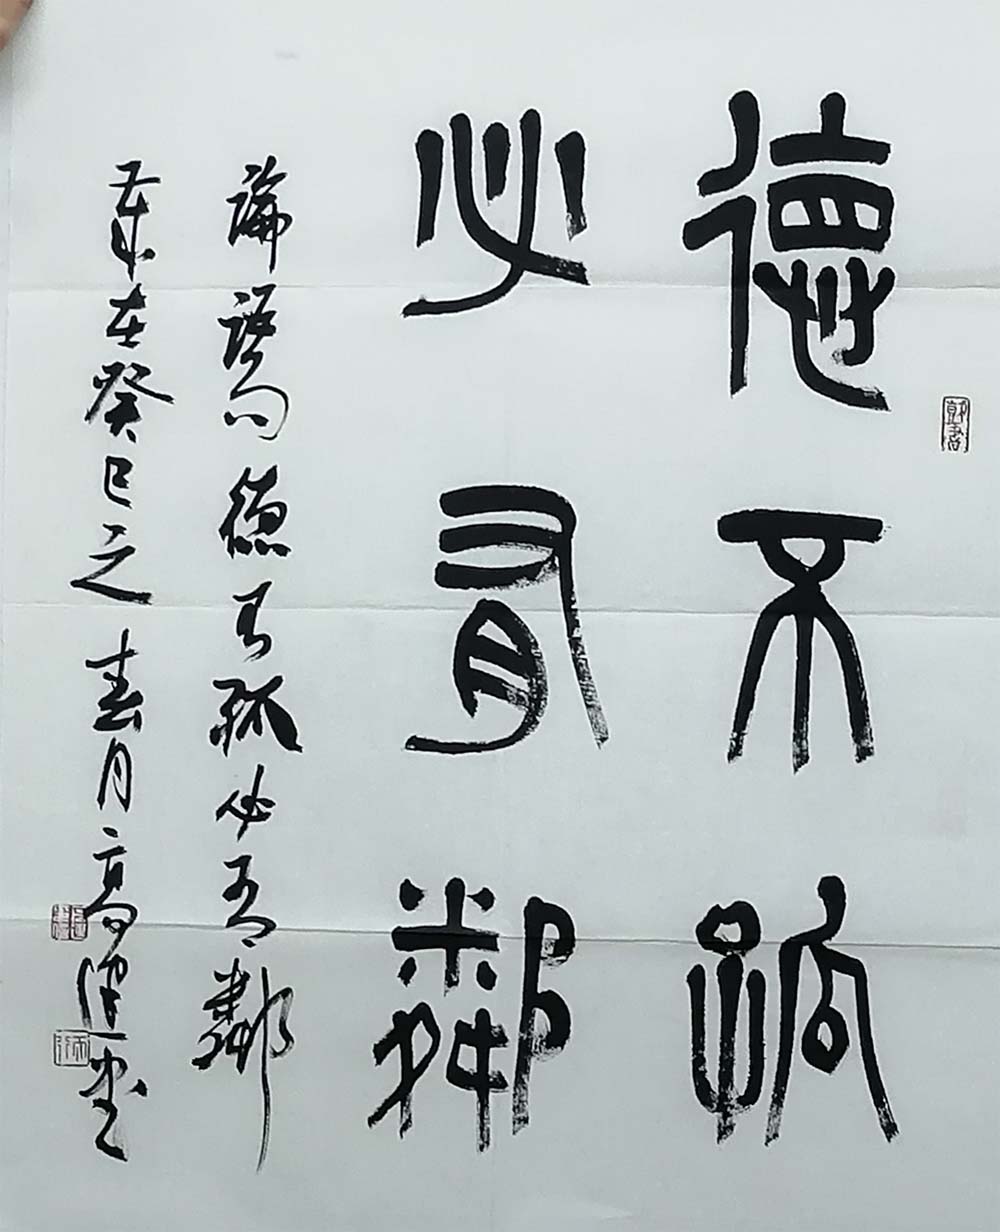 德不孤
必有鄰
論語句德不孤必有鄰
歲在癸巳之春月高